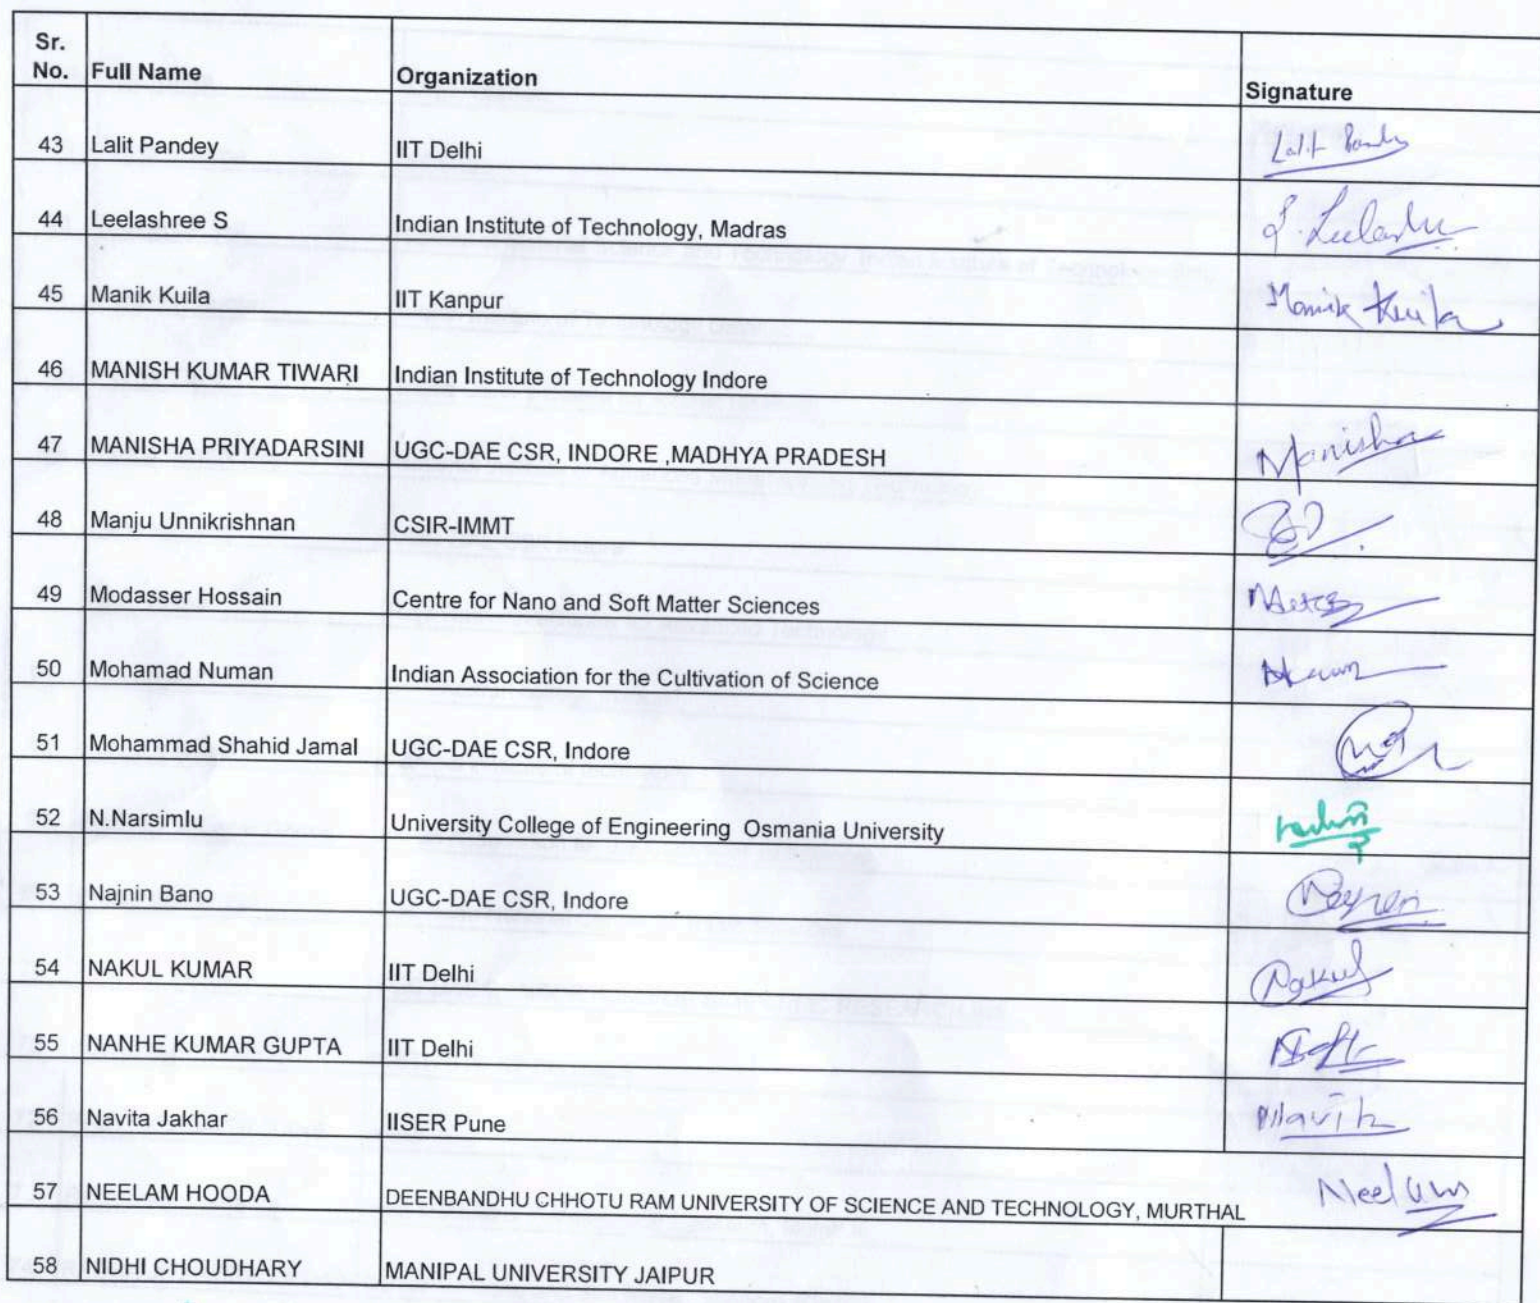 Sr. No. Full Name Organization Signature
43 Lalit Pandey IIT Delhi Lalit Pandey
44 Leelashree S Indian Institute of Technology, Madras
45 Manik Kuila IIT Kanpur Manik Kuila
46 MANISH KUMAR TIWARI Indian Institute of Technology Indore
47 MANISHA PRIYADARSINI UGC-DAE CSR, INDORE ,MADHYA PRADESH Manisha
48 Manju Unnikrishnan CSIR-IMMT
49 Modasser Hossain Centre for Nano and Soft Matter Sciences
50 Mohamad Numan Indian Association for the Cultivation of Science
51 Mohammad Shahid Jamal UGC-DAE CSR, Indore
52 N.Narsimlu University College of Engineering Osmania University
53 Najnin Bano UGC-DAE CSR, Indore
54 NAKUL KUMAR IIT Delhi Nakul
55 NANHE KUMAR GUPTA IIT Delhi
56 Navita Jakhar IISER Pune
57 NEELAM HOODA DEENBANDHU CHHOTU RAM UNIVERSITY OF SCIENCE AND TECHNOLOGY, MURTHAL Neelam
58 NIDHI CHOUDHARY MANIPAL UNIVERSITY JAIPUR